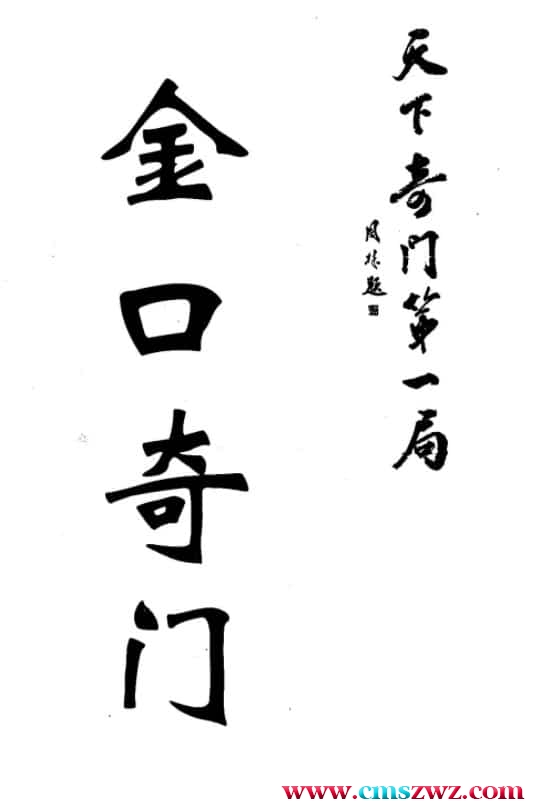 天下奇門第一局
金口奇门
www.cmszwz.com